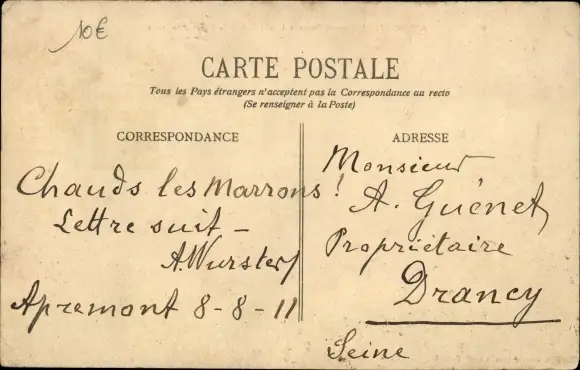 10€
CARTE POSTALE
Tous les Pays étrangers n'acceptent pas la Correspondance au recto
(Se renseigner à la Poste)
CORRESPONDANCE
Chauds les Marrons !
Lettre suit –
A. Wurster
Apremont 8-8-11
ADRESSE
Monsieur
A. Guénet
Propriétaire
Drancy
Seine